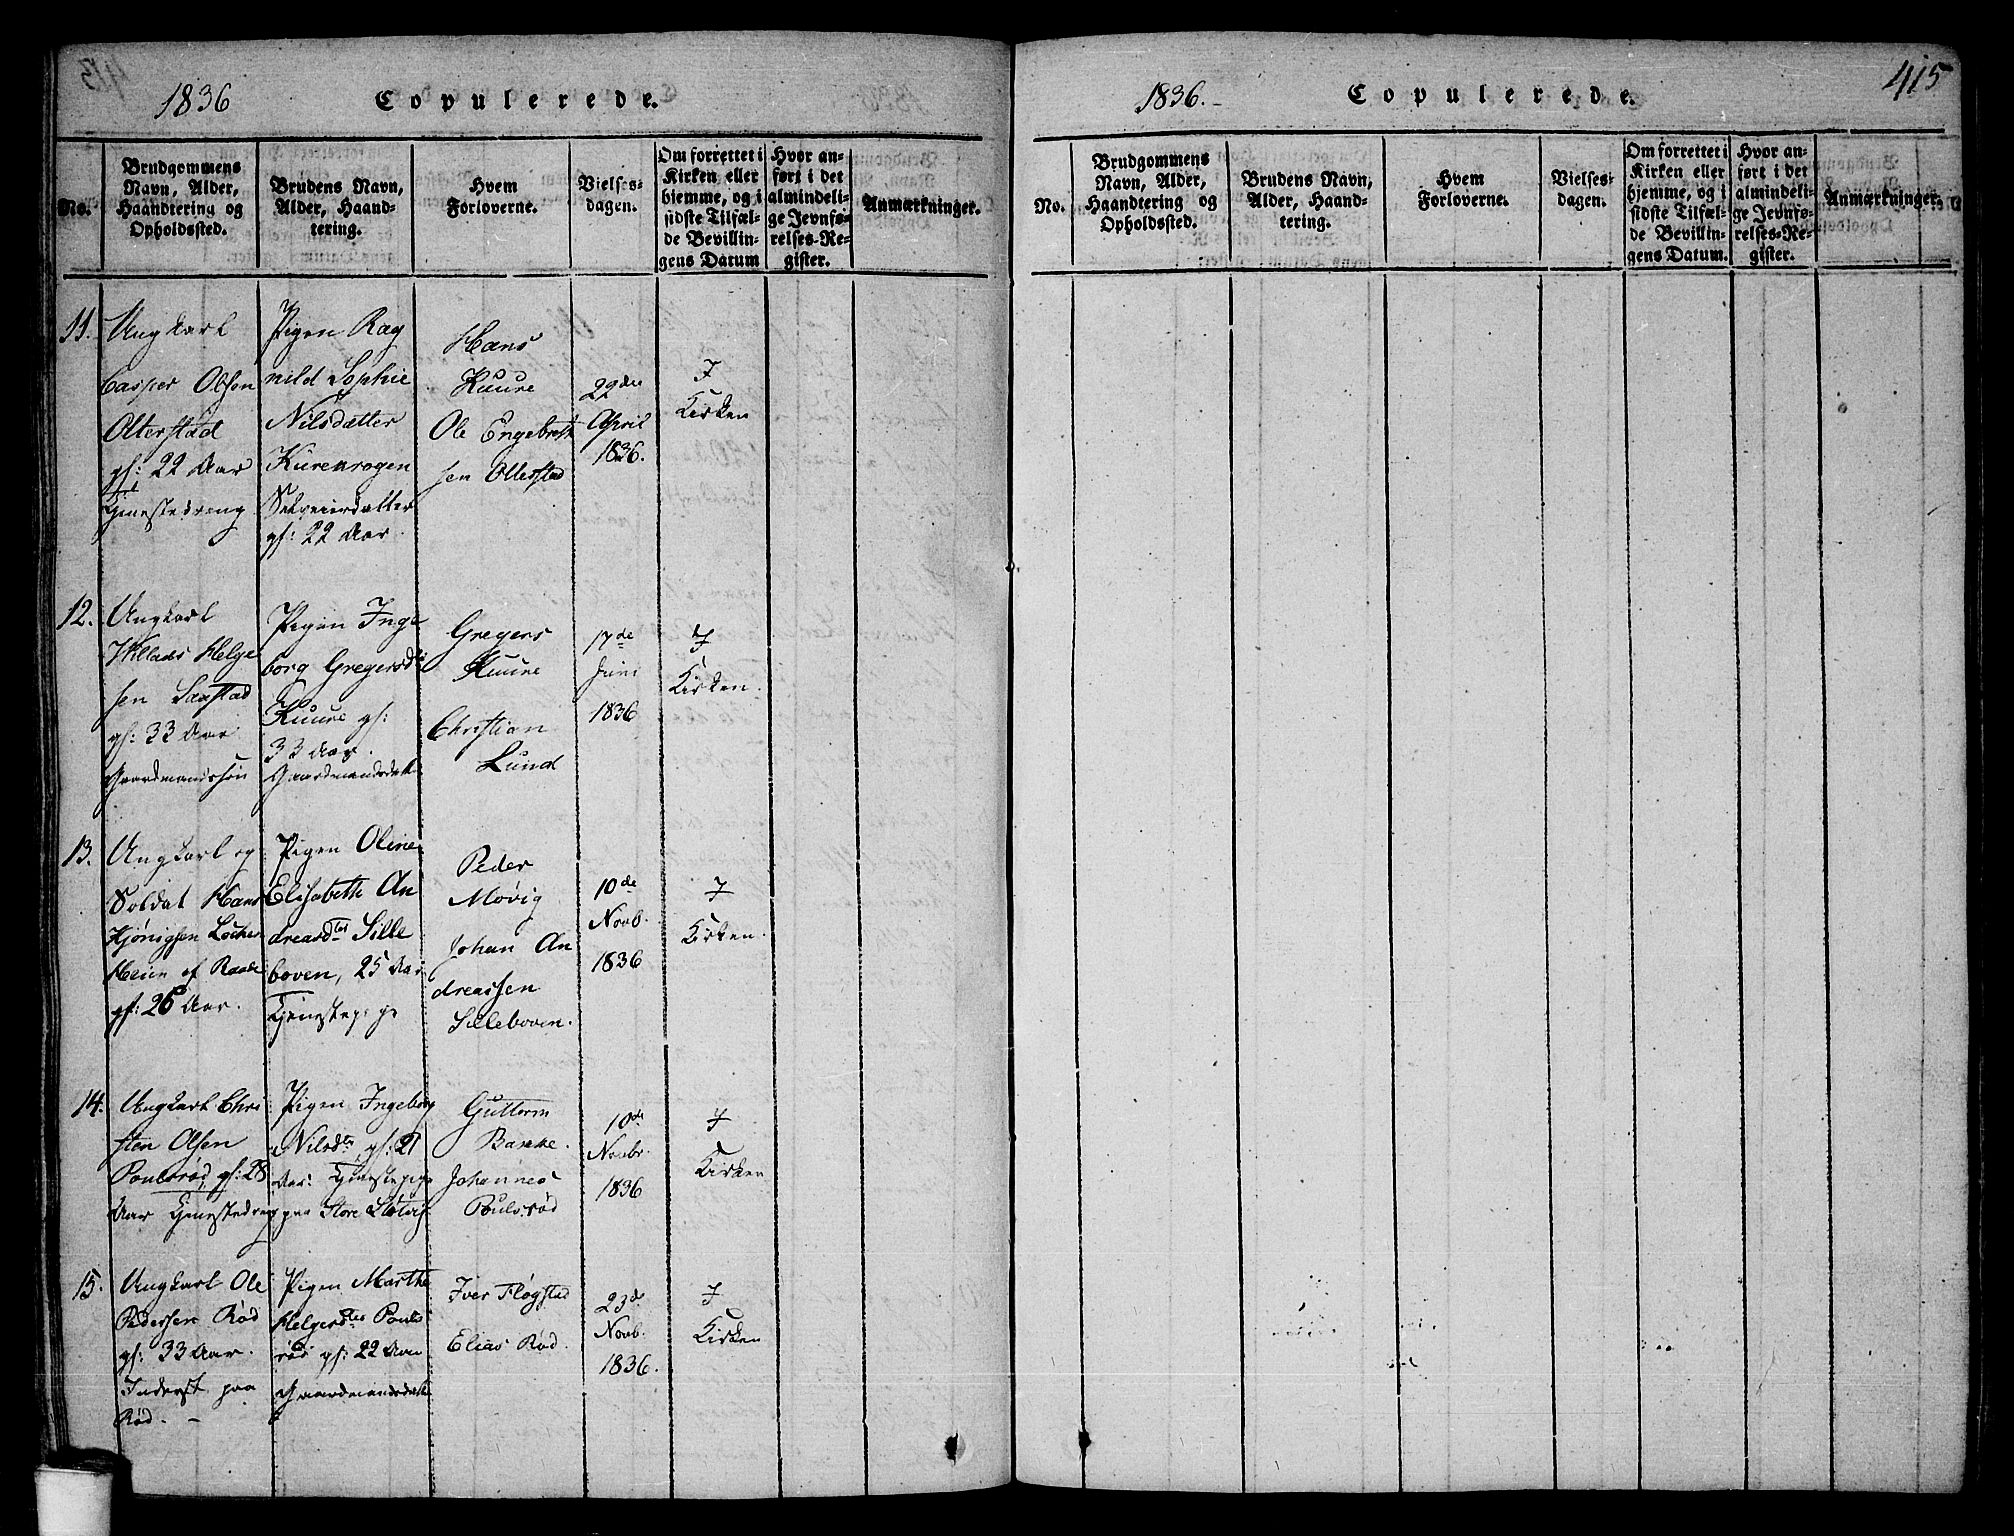 1836 Copulerede.
No.
Brudgommens Navn, Alder, Haandtering og Opholdssted.
Brudens Navn, Alder, Haandtering.
Hvem Forloverne.
Vielsesdagen.
Om forrettet i Kirken eller hjemme, og i sidste Tilfælde Bevillingens Datum
Hvor anført i det almindelige Jevnførelses-Register.
Anmærkninger.
11.
Ungkarl
Casper Olsen
Olterstad
gl: 22 Aar
Tjenestedreng
Pigen Rag
nild Sophie
Nilsdatter
Kurevrogen
gl: 22 Aar.
Hans
Kuure
Ole Engebreth
sen Ollerstad
22de
April
1836.
I
Kirken
12.
Ungkarl
Mads Helge
sen Saastad
gl: 33 Aar
Gaardmandssøn
Pigen Inge
borg Gregersdtr
Kuure gl:
33 Aar.
Gaardmandsdatt
Gregers
Kuure
Christian
Lund
17de
Juni
1836
I
Kirken.
13.
Ungkarl og
Soldat Hans
Hjönigsen Locher
Heien af Raade
gl: 26 Aar.
Pigen Oline
Elisabeth An
dreasdter Sille
boven, 25 Aar
Tjenestepige
Peder
Movig
Johan An
dreassen
Silleboven.
10de
Novb.
1836
I
Kirken.
14.
Ungkarl Chri
sten Olsen
Poulsrød, gl: 28
Aar Tjenestedreng
Pigen Ingeborg
Nilsdtr, gl: 21
Aar. Tjenestepige
paa Store Slotvig
Guttorm
Bakke.
Johannes
Poulsrød
10de
Novbr.
1836
I
Kirken
15.
Ungkarl Ole
Pedersen Rød
gl: 33 Aar.
Inderst paa
Rød. –
Pigen Marthe
Helgesdter Pouls
rød gl: 22 Aar
Gaardmandsdatter
Iver Fløgstad
Elias Rød.
23de
Novb.
1836.
I
Kirken
1836. – Copulerede. 415
No.
Brudgommens Navn, Alder, Haandtering og Opholdssted.
Brudens Navn, Alder, Haandtering.
Hvem Forloverne.
Vielsesdagen.
Om forrettet i Kirken eller hjemme, og i sidste Tilfælde Bevillingens Datum.
Hvor anført i det almindelige Jevnførelses-Register.
Anmærkninger.